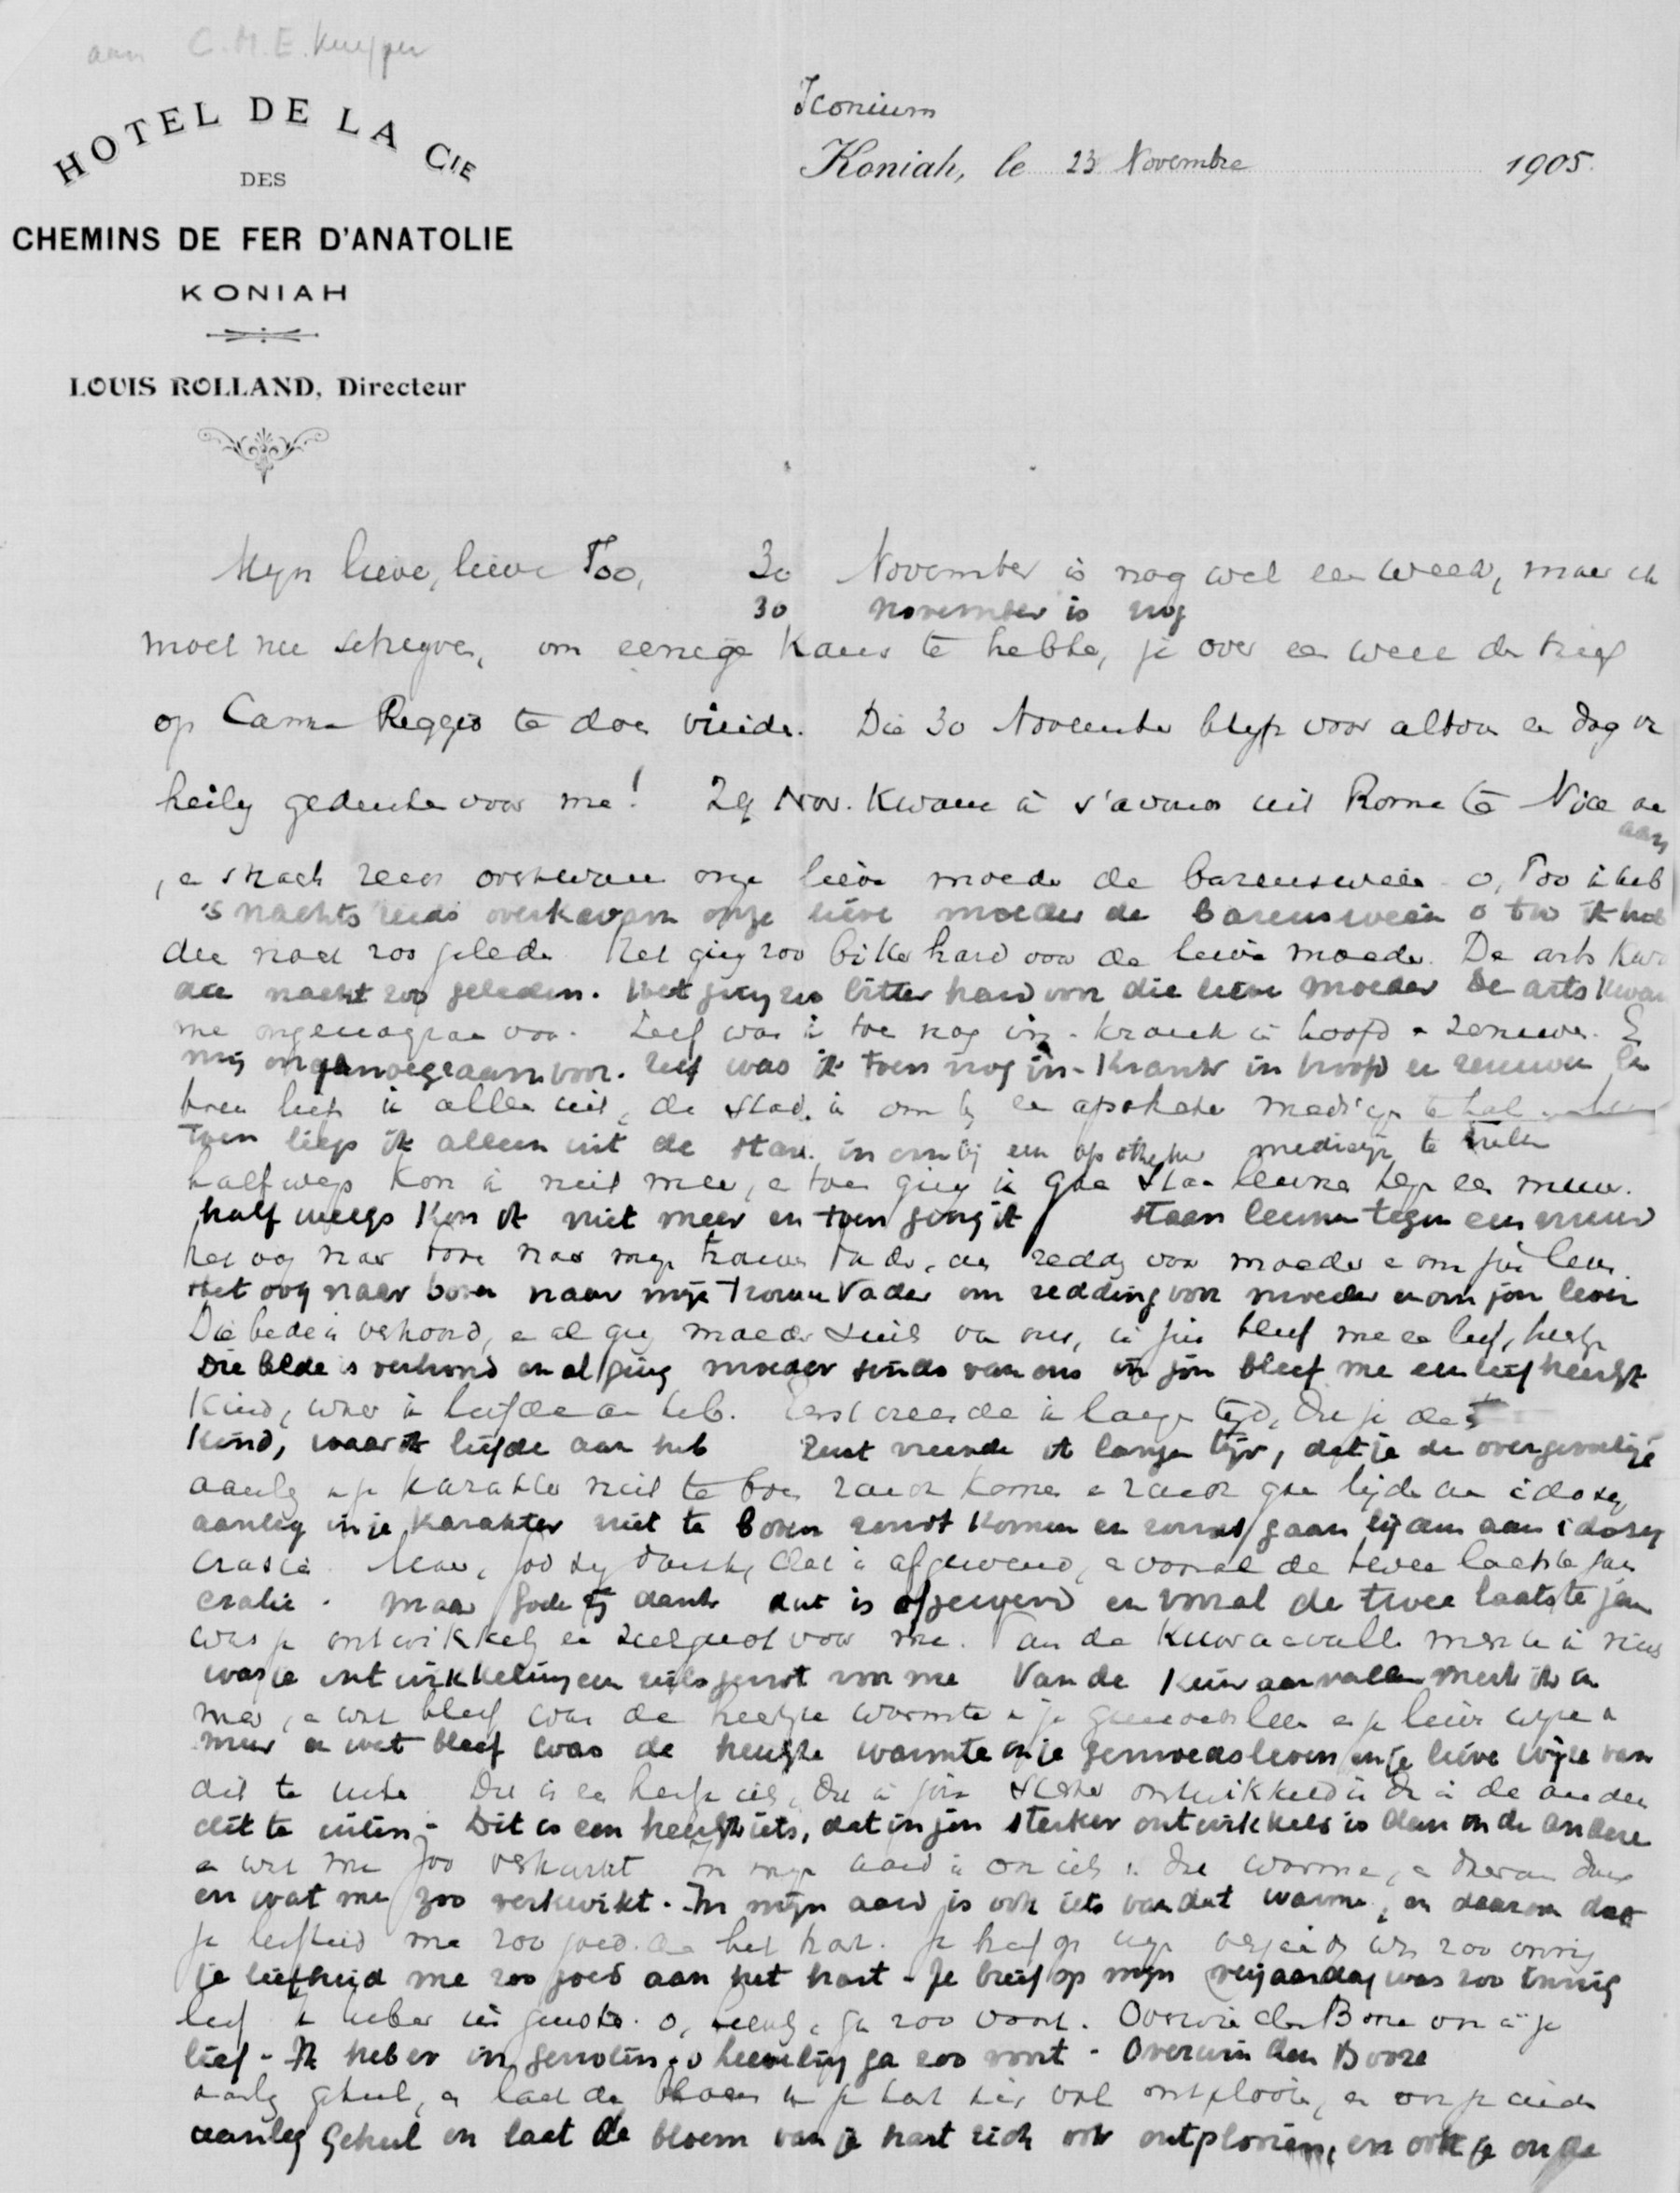 aan C.M.E. Kuyper
HOTEL DE LA CIE
DES
CHEMINS DE FER D'ANATOLIE
KONIAH
LOUIS ROLLAND, Directeur
Iconium
Koniah, le 23 Novembre 1905.
Mijn lieve, lieve Too, 30 November is nog wel een week, maar ik
30 november is nog
moet nu schrijven, om eenige kans te hebben, je over een week de brief
op Canne Reggio te doen vinden. Die 30 November blijft voor altoos een dag
heilig gedenken voor me! 29 Nov. kwam ik s'avonds uit Rome te Nice
aan
, s'nachts reeds overkwam onze lieve moeder de barensweeën o, Too ik heb
's nachts reeds overkwam onze lieve moeder de barensweeën o too ik heb
die nacht zoo geleden Het ging zoo bitter hard voor de lieve moeder. De arts kwam
die nacht zoo geleden. Het ging zoo bitter hard voor die lieve moeder De arts kwam
me ongenoegzaam voor. Zelf was ik toe nog in-krank in hoofd en zenuwen. En
mij ongenoegzaam voor. Zelf was ik toen nog in-krank in hoofd en zenuwen En
toen liep ik alleen uit, de stad in om bij een apotheker medicijn te halen
toen liep ik alleen uit de stad in om bij een apotheker medicijn te halen
halfwegs kon ik niet meer, en toen ging ik gaan staan leunen tegen een muur.
halfweegs kon ik niet meer en toen ging ik staan leunen tegen een muur
het oog naar boven naar mijn trouwe Vader, om redding voor moeder en om jou leven.
Het oog naar boven naar mijn trouwe Vader om redding voor moeder en om jou leven
Die bede is verhoord, en al ging moeder sinds van ons, in jou bleef me een lief, heerlijk
Die bede is verhoord en al ging moeder sinds van ons in jou bleef me een lief heerlijk
kind, waar ik liefde aan heb. Eerst vreesde ik lange tijd, dat je de
kind, waar ik liefde aan heb Eerst vreesde ik lange tijd, dat je de overgevoelige
aanleg in je karakter niet te boven zoudt komen en zoudt gaan lijden aan idiosyn
aanleg in je karakter niet te boven zoudt komen en zoudt gaan lijden aan idiosyn
crasie. Maar, God zij dank, dat is afgewend, en vooral de twee laatste jaren
crasie. Maar Gode zij dank dat is afgewend en vooral de twee laatste jaren
was je ontwikkeling een zielsgenot voor me. Van de kuuraanvallen merkte ik niets
was je ontwikkeling een zielsgenot voor me Van de kuuraanvallen merk ik
meer, en wat bleef was de heerlijke warmte in je gemoedsleven en je lieve wijze van
meer en wat bleef was de heerlijke warmte in je gemoedsleven en je lieve wijze van
dit te uiten Dit is een heerlijk iets, dat in jou sterker ontwikkeld is dan in de andere
dit te uiten. Dit is een heerlijk iets, dat in jou sterker ontwikkeld is dan in de andere
en wat me zoo verkwikt In mijn aard is ook iets van dat warme, en daarom doet
en wat me zoo verkwikt. In mijn aard is ook iets van dat warme, en daarom doet
je liefheid me zoo goed aan het hart. Je brief op mijn verjaardag was zoo innig
je liefheid me zoo goed aan het hart. Je brief op mijn verjaardag was zoo innig
lief Ik heb er in genoten. o, lieveling, ga zoo voort. Overwin den Booze
lief. Ik heb er in genoten. o lieveling ga zoo voort. Overwin den Booze
aanleg geheel, en laat de bloem van je hart zich ook ontplooien, en ook je
aanleg geheel en laat de bloem van je hart zich ook ontplooien, en ook je